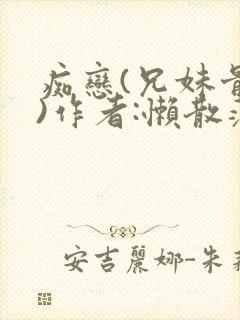 痴戀(兄妹骨
)作者:懶散
安吉麗娜-朱莉